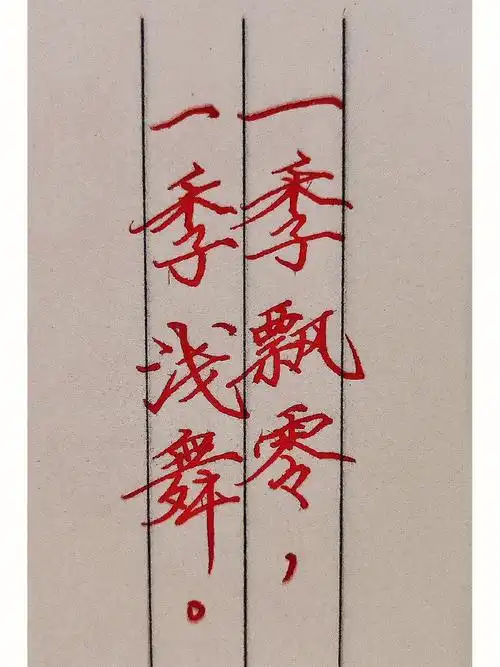 一季飘零，
一季浅舞。